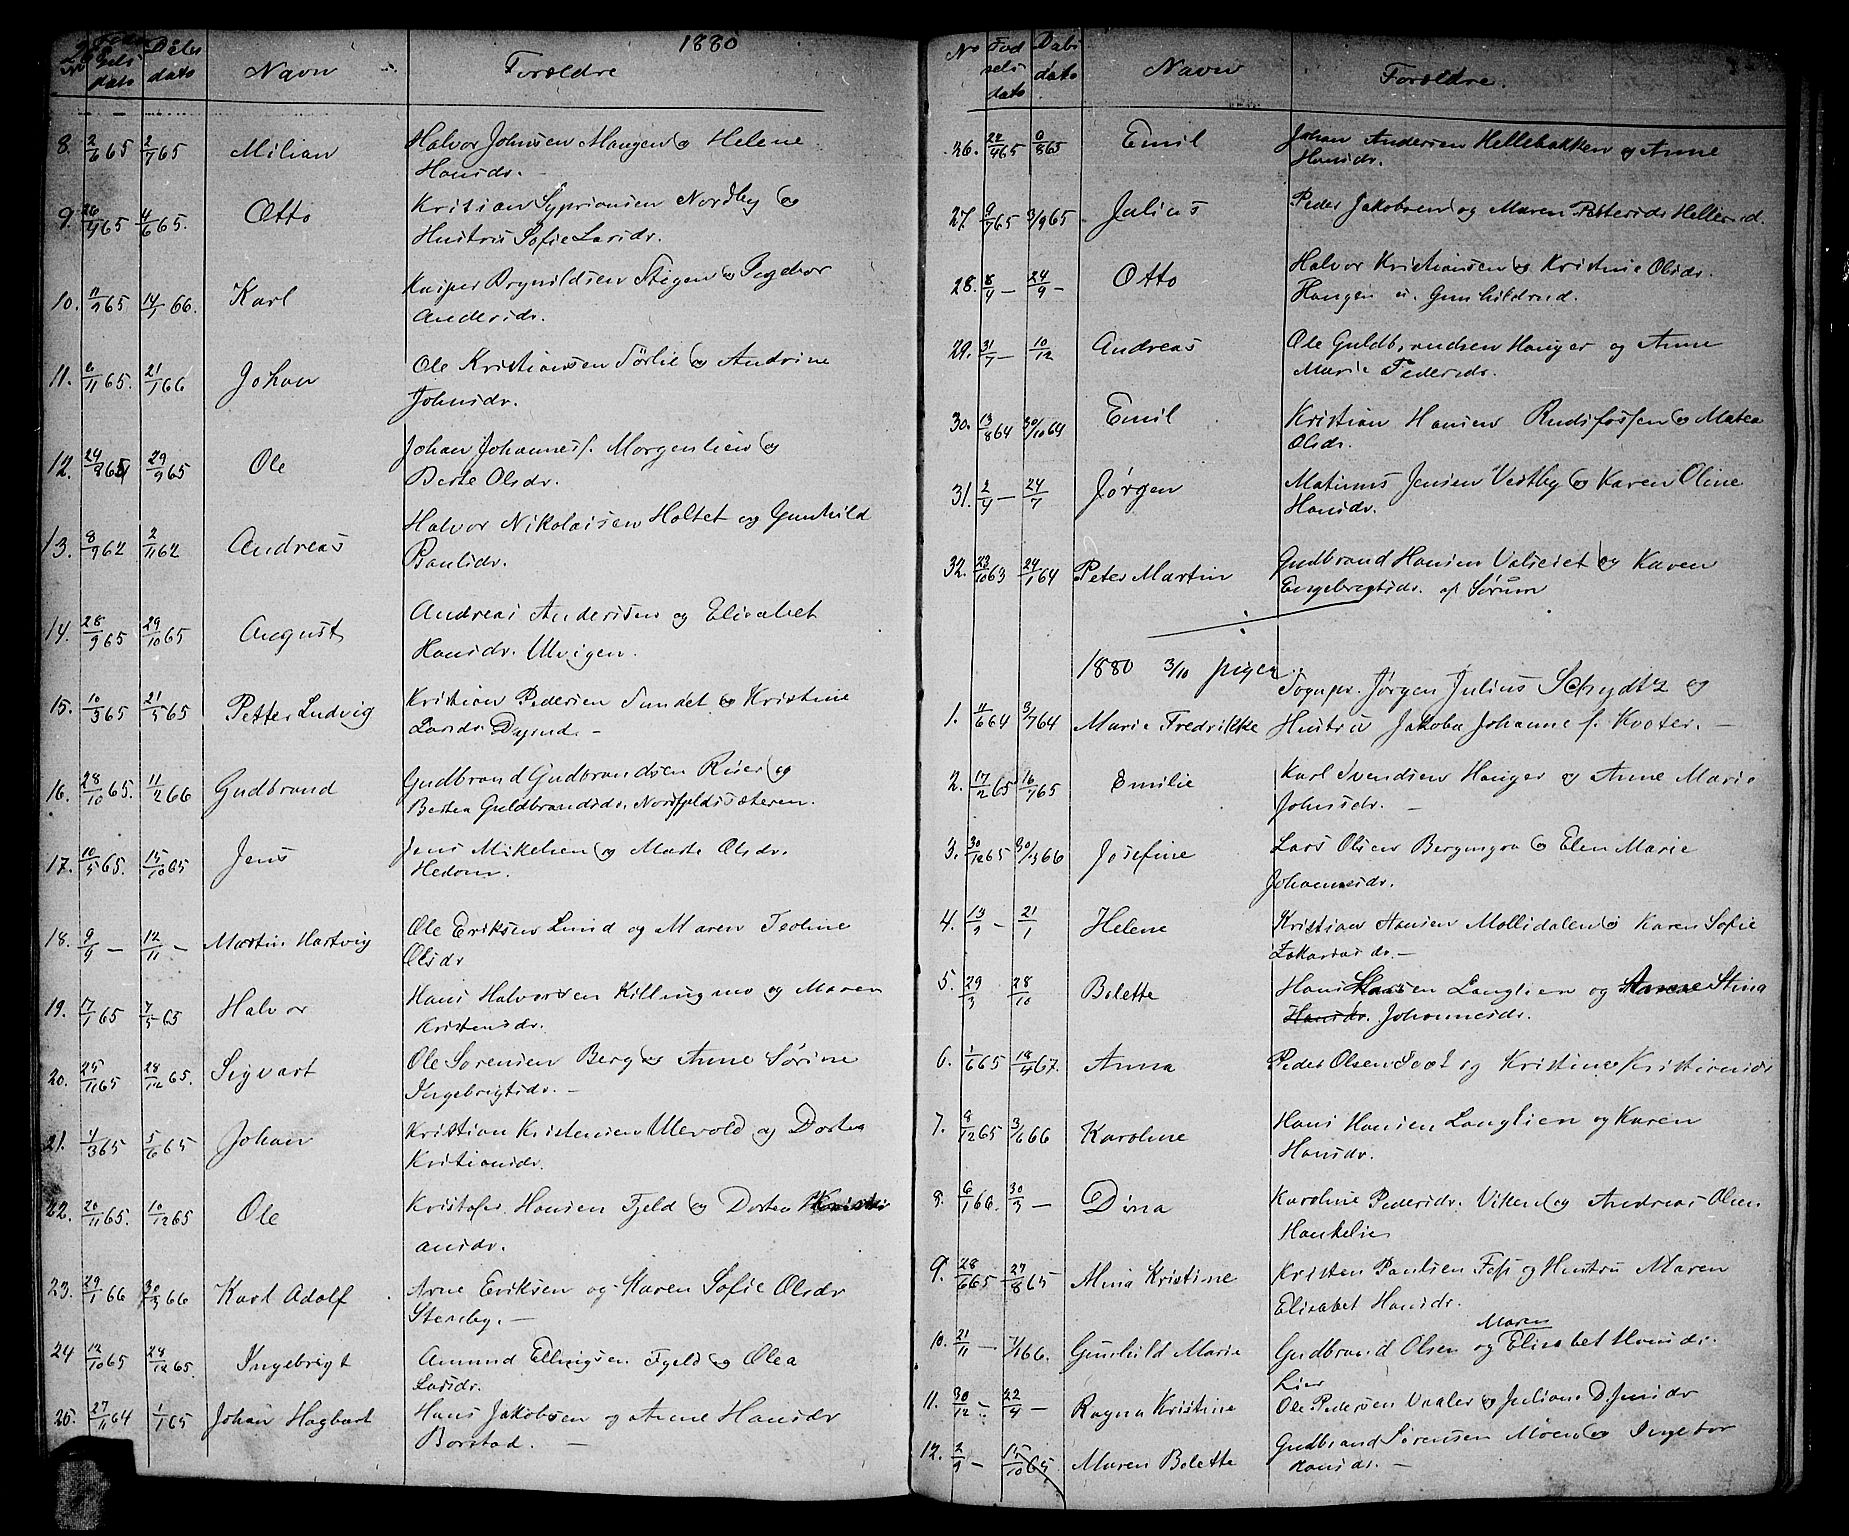 1880
No Fødsels dato Dåbs dato Navn Forældre
8. 2/6 65 2/7 65 Milian Halvor Johnsen Haugen og Helene
Hansdr. -
9. 26/4 65 4/6 65. Otto Kristian Sypriansen Nordby og
Hustru Sofie Larsdr.
10. 11/7 65 14/1 66. Karl Kasper Brynildsen Stigen og Ingebor
Andersdr.
11. 6/11 65. 21/1 66 Johan Ole Kristiansen Sørlie og Andrine
Johnsdr.
12. 24/8 65 29/9 65 Ole Johan Johannesf. Morgenlien og
Berte Olsdr.
13. 8/9 62 2/11 62 Andreas Halvor Nikolaisen Holtet og Gunhild
Paulsdr.
14. 28/9 65 29/10 65 August Andreas Andersen og Elisabet
Hansdr. Ulvigen.
15. 10/3 65 21/5 65 Petter Ludvig Kristian Pedersen Sundet og Kristine
Larsdr. -
16. 28/10 65. 11/2 66 Gudbrand Gudbrand Gudbrandsen Riser og
Bertea Guldbrandsdr.
17. 10/5 65. 15/10 65 Jens Jens Mikelsen og Marte Olsdr.
Hedom.
18. 9/9 - 12/11 - Martin Hartvig Ole Eriksen Lund og Maren Teoline
Olsdr
19. 17/1 65 7/5 65 Halvor Hans Halvorsen Killingmo og Maren
Kristensdr.
20. 25/11 65 28/12 65. Sigvart Ole Sørensen Berg og Anne Sørine
Ingebrigtsdr.
21. 1/3 65 5/6 65 Johan Kristian Kristensen Ulevold og Dortea
Kristiansdr.
22. 20/11 65. 10/12 65 Ole Kristofer Hansen Fjeld og Dortea Kristi
ansdr.
23. 29/1 66 30/3 66 Karl Adolf Arne Eriksen og Karen Sofie Olsdr
Stensby. -
24 12/10 65 28/12 65. Ingebrigt Amund Ellingsen Fjeld og Olea
Larsdr.
25. 27/11 64 1/1 65 Johan Hagbart Hans Jakobsen og Anne Hansdr
Borstad. -
No Fødsels dato Dåbs dato Navn Forældre.
26. 22/4 65 6/8 65 Emil Johan Andersen Hellebakken og Anne
Hansdr.
27. 9/7 65 3/9 65 Julius Peder Jakobsen og Maren Pettersdr
28. 8/4 - 24/9 - Otto Halvor Kristiansen og Kristine Olsdr.
Haugen u. Gunhildrud.
29. 31/7 - 10/12 Andreas Ole Guldbrandsen Hauger og Anne
Marie Pedersdr.
30. 13/8 64 30/10 64 Emil Kristian Hansen Rudsfossen og Matea
Olsdr.
31. 2/4 - 24/7 Jørgen Matinus Jensen Vestby og Karen Oline
Hansdr.
32. 23/10 63 24/1 64 Peter Martin Gudbrand Hansen og Karen
Engebregtsdr. af Sørum
1880 3/10 piger
1. 11/6 64 3/7 64 Marie Fredrikke Sognpr. Jørgen Julius Schydtz og
Hustru Jakoba Johanne f. -
2. 17/2 65 16/7 65 Emilie Karl Svendsen Hauger og Anne Marie
Johnsdr. -
3. 30/12 65 30/3 66 Josefine Lars Olsen Bergmyra og Elen Marie
Johannesdr.
4. 13/9 - 21/1 Helene Kristian Hansen Mollidalen og Karen Sofie
Zakariasdr. -
5. 29/3 28/10 Bolette Hans Larsen Langlien og Anne Stina
Hansdr. Johannesdr.
6. 1/6 65 18/4 67. Anna Peder Olsen og Kristine Kristiansdr
7. 8/12 65 3/6 66 Karoline Hans Hansen Langlien og Karen
Hansdr.
8. 6/1 66. 30/3 - Dina Karoline Pedersdr. Viken og Andreas Olsen
Haukelie
9. 28/6 65 27/8 65 Mina Kristine Kristen Paulsen Fos og Hustru Maren
Elisabet Hansdr.
10. 21/11 - 1/1 66. Gunhild Marie Gudbrand Olsen og Maren Elisabet Hansdr.
Lier
11. 30/12 - 22/4 - Ragna Kristine Ole Pedersen Vaaler og Juliane D. Jensdr
12. 2/9 - 15/10 65. Maren Bolette Gudbrand Sørensen Moen og Ingebor
Hansdr. -